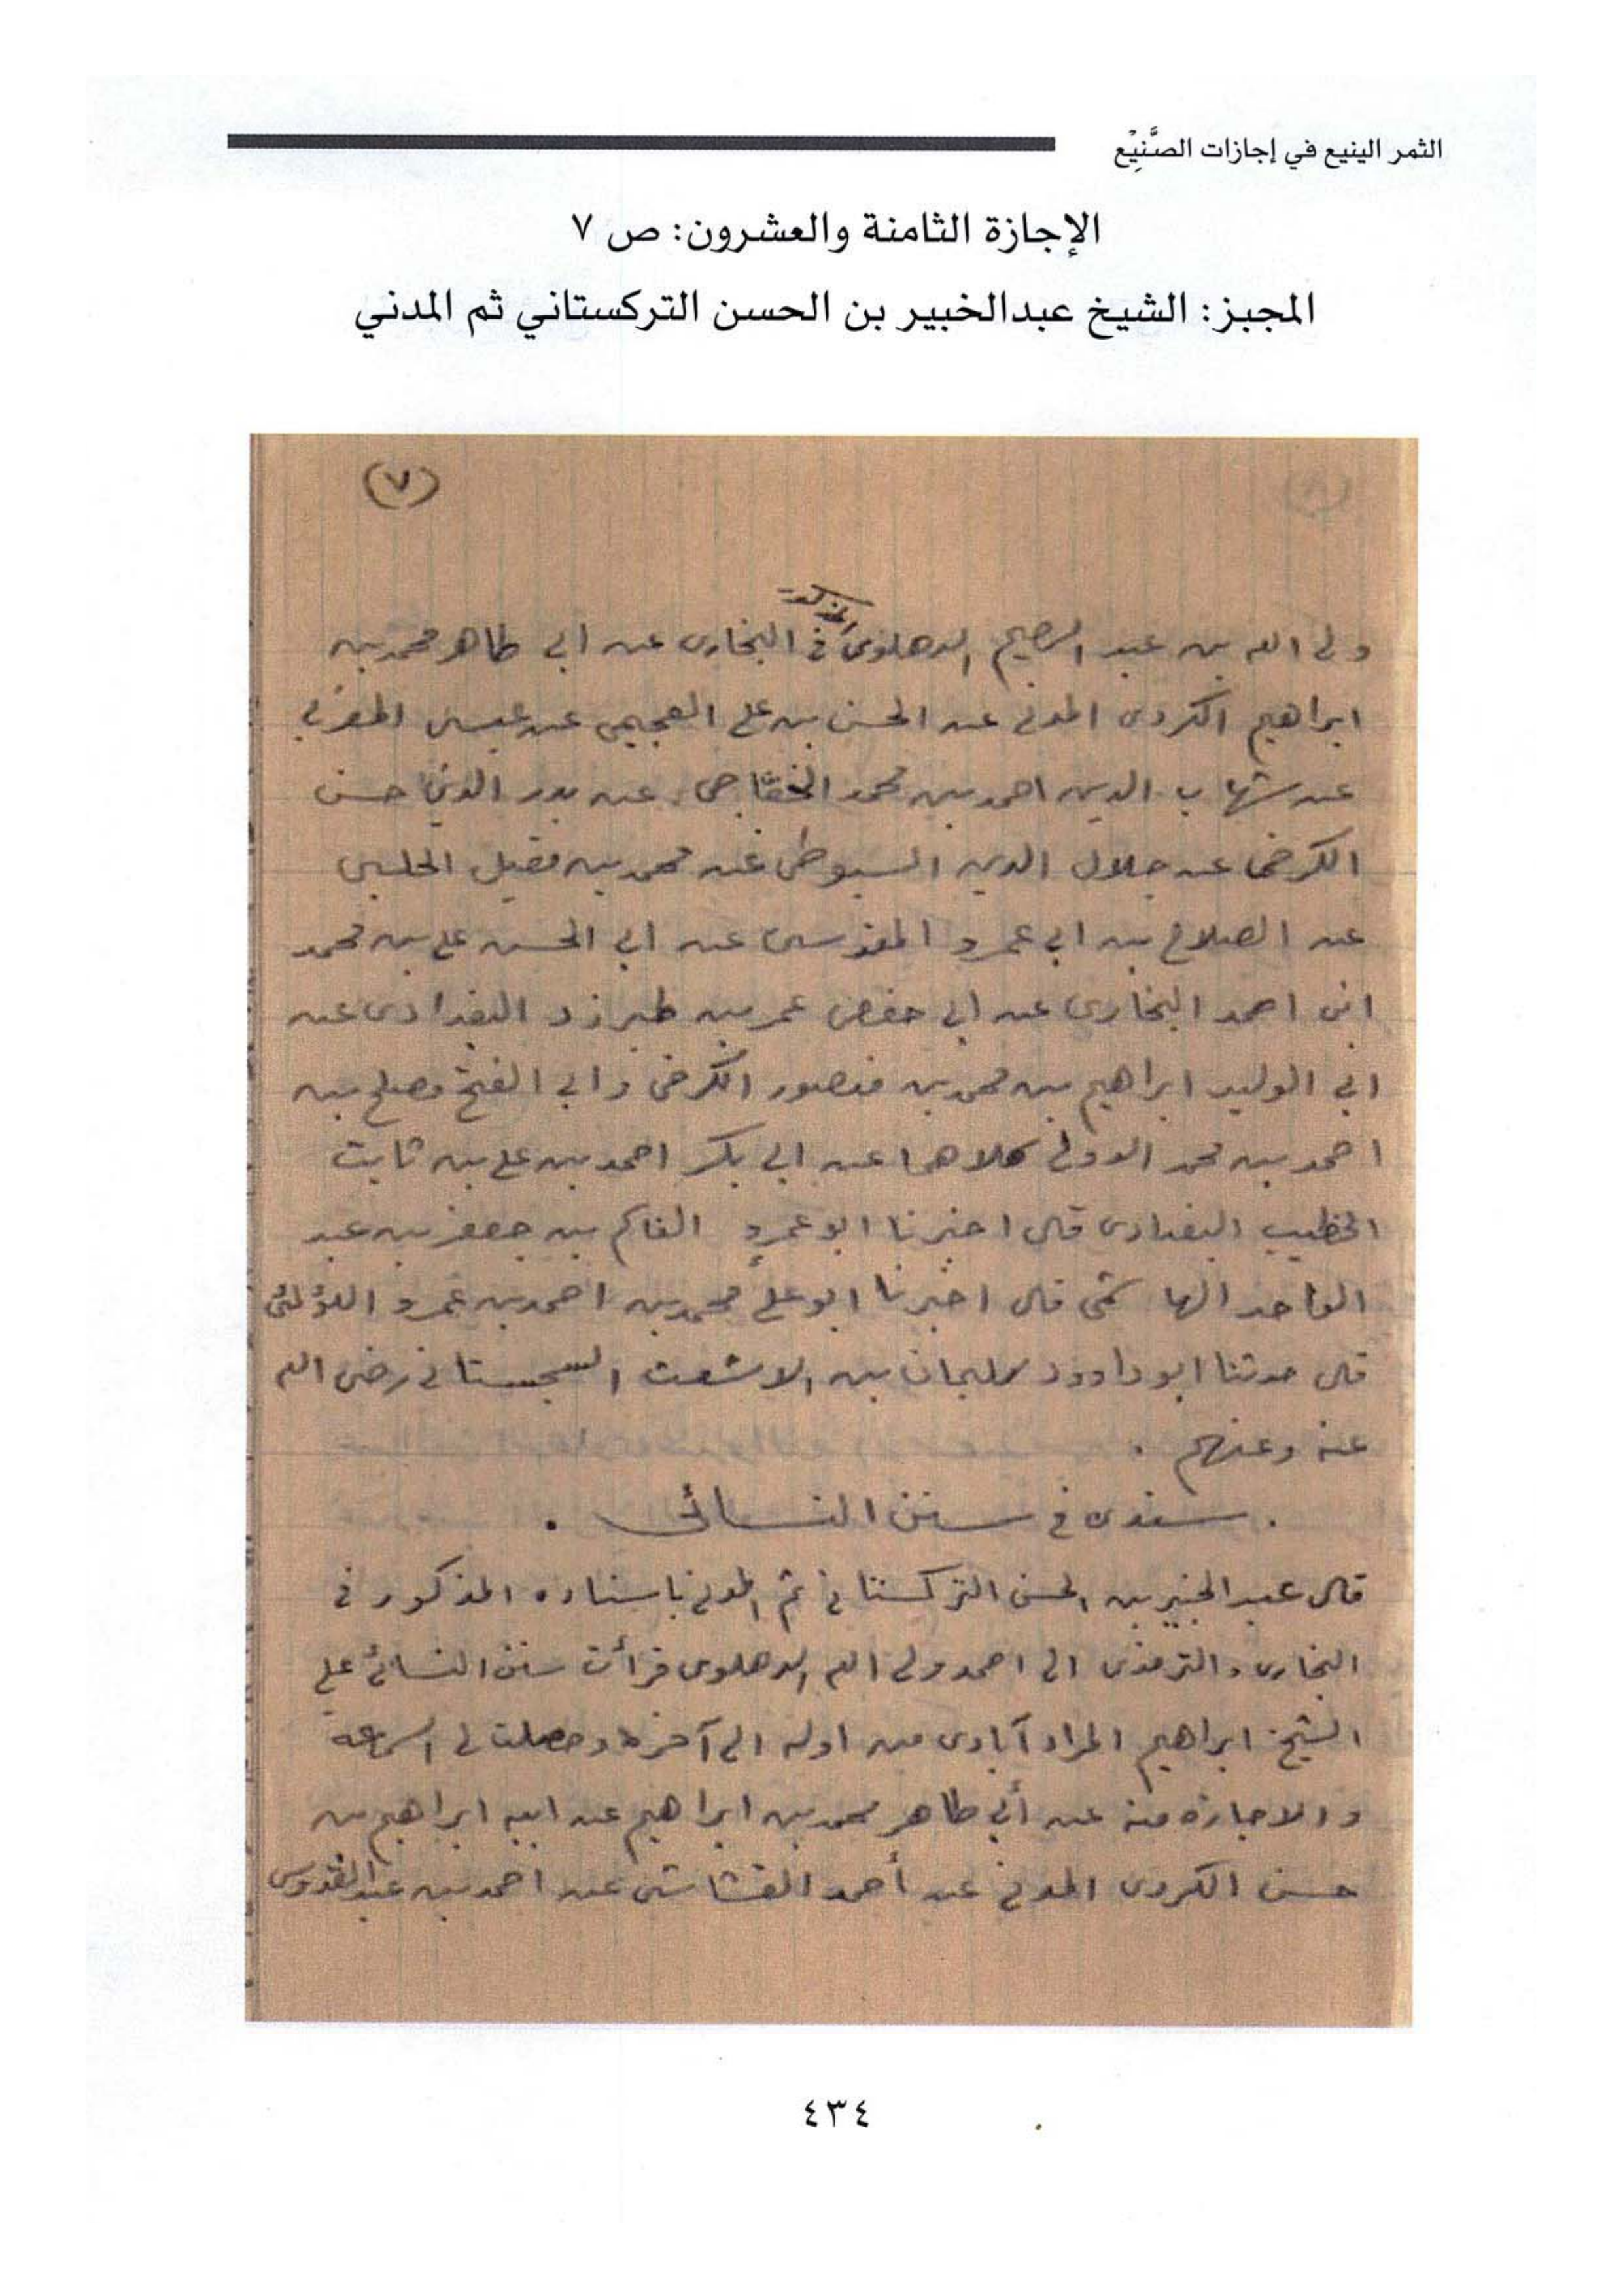 الثمر الينيع في إجازات الصَّنِيْع
الإجازة الثامنة والعشرون: ص ٧
المجيز: الشيخ عبدالخبير بن الحسن التركستاني ثم المدني
(٧)
ولى الله بن عبد الرحيم الدهلوى المذكور فى البخارى عن ابى طاهر محمد بن
ابراهيم الكردى المدنى عن الحسن بن على العجيمى عن عيسى المغربى
عن شهاب الدين احمد بن محمد الخفّاجى عن بدر الدين حسن
الكرخى عن جلال الدين السيوطى عن محمد بن مقبل الحلبى
عن الصلاح بن ابى عمرو المقدسى عن ابى الحسن على بن محمد
ابن احمد البخارى عن ابى حفص عمر بن طبرزد البغدادى عن
ابى الوليد ابراهيم بن محمد بن منصور الكرخى وابى الفتح مصلح بن
احمد بن محمد الدولى كلاهما عن ابى بكر احمد بن على بن ثابت
الخطيب البغدادى قال اخبرنا ابو عمرو القاسم بن جعفر بن عبد
الواحد الهاشمى قال اخبرنا ابو على محمد بن احمد بن عمرو اللؤلئى
قال حدثنا ابو داوود سليمان بن الاشعث السجستانى رضى الله
عنه وعنهم .
. سندى فى سنن النسائى .
قال عبد الخبير بن الحسن التركستانى ثم المدنى باسناده المذكور فى
البخارى والترمذى الى احمد ولى الله الدهلوى قرأت سنن النسائى على
الشيخ ابراهيم المراد آبادى من اوله الى آخره وحصلت لى السماعة
والاجازة منه عن أبى طاهر محمد بن ابراهيم عن ابيه ابراهيم بن
حسن الكردى المدنى عن أحمد القشاشى عن احمد بن عبد القدوس
٤٣٤